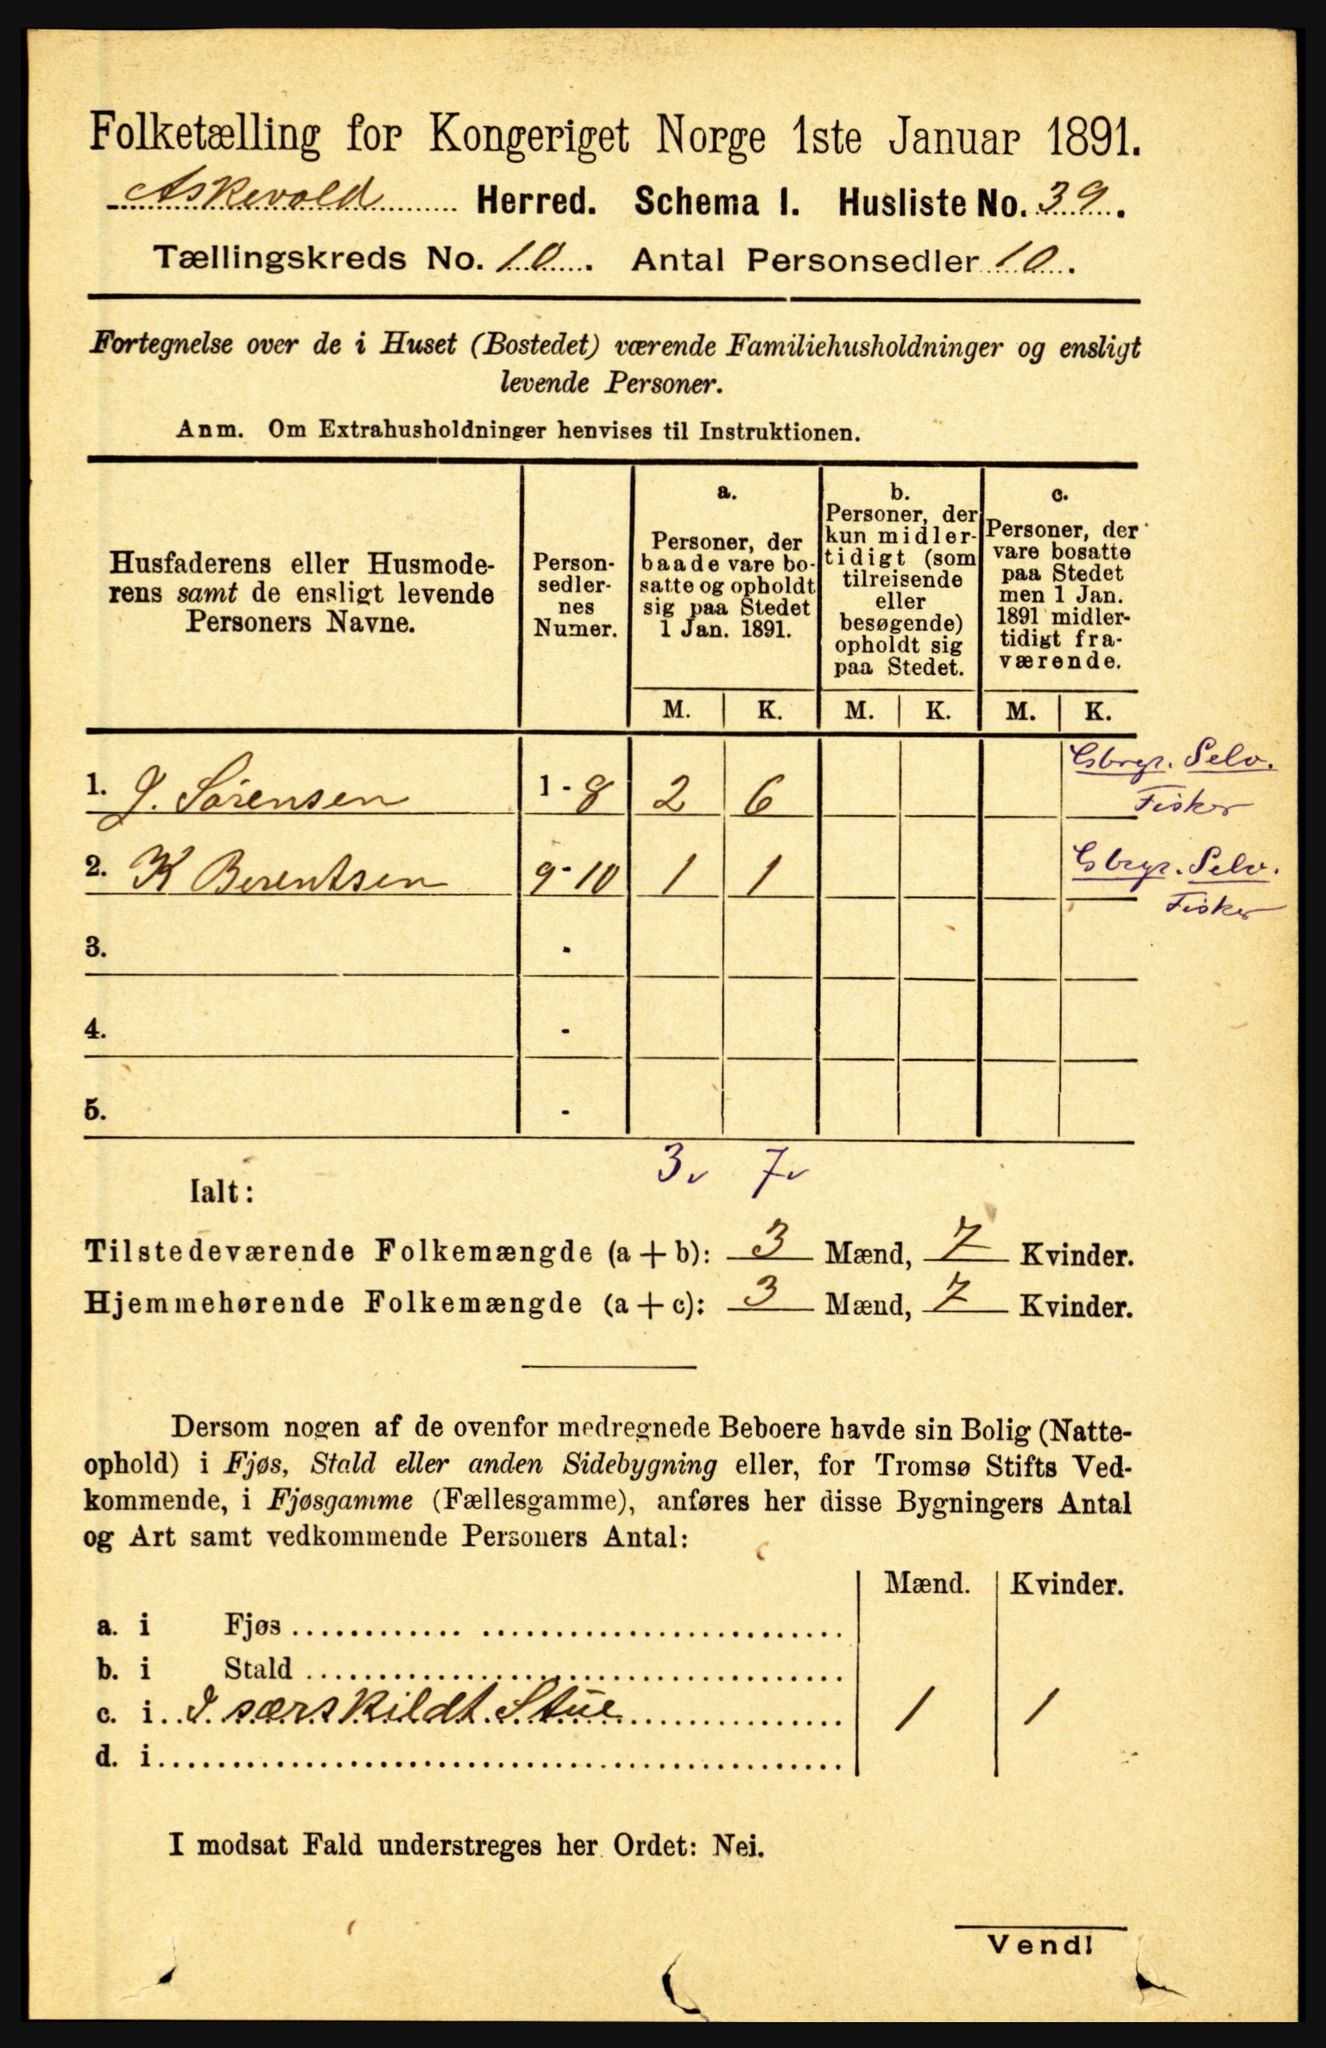 Folketælling for Kongeriget Norge 1ste Januar 1891.
Askevold Herred. Schema I. Husliste No. 39.
Tællingskreds No. 10. Antal Personsedler 10.
Fortegnelse over de i Huset (Bostedet) værende Familiehusholdninger og ensligt
levende Personer.
Anm. Om Extrahusholdninger henvises til Instruktionen.
Husfaderens eller Husmode-
rens samt de ensligt levende
Personers Navne.
Person-
sedler-
nes
Numer.
a.
Personer, der
baade vare bo-
satte og opholdt
sig paa Stedet
1 Jan. 1891.
b.
Personer, der
kun midler-
tidigt (som
tilreisende
eller
besøgende)
opholdt sig
paa Stedet.
c.
Personer, der
vare bosatte
paa Stedet
men 1 Jan.
1891 midler-
tidigt fra-
værende.
M. K. M. K. M. K.
1. J. Sørensen 1-8 2 6 Gbrgr. Selv.
Fisker
2. K Berentsen 9-10 1 1 Gbrgr. Selv.
Fisker
3. -
4. -
5. -
3 7
Ialt:
Tilstedeværende Folkemængde (a + b): 3 Mænd, 7 Kvinder.
Hjemmehørende Folkemængde (a + c): 3 Mænd, 7 Kvinder.
Dersom nogen af de ovenfor medregnede Beboere havde sin Bolig (Natte-
ophold) i Fjøs, Stald eller anden Sidebygning eller, for Tromsø Stifts Ved-
kommende, i Fjøsgamme (Fællesgamme), anføres her disse Bygningers Antal
og Art samt vedkommende Personers Antal:
Mænd. Kvinder.
a. i Fjøs
b. i Stald
c. i I særskildt Stue 1 1
d. i
I modsat Fald understreges her Ordet: Nei.
Vend!